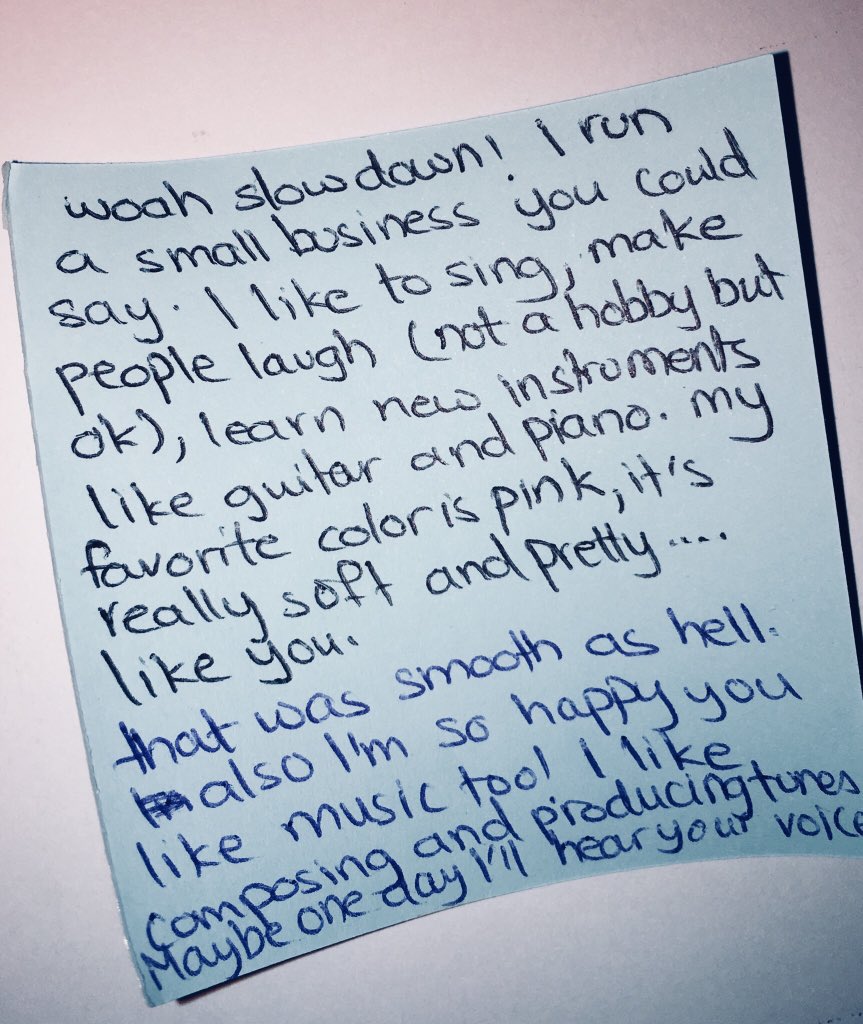 woah slow down! I run
a small business you could
say. I like to sing, make
people laugh (not a hobby but
ok), learn new instruments
like guitar and piano. my
favorite color is pink, it's
really soft and pretty....
like you.
that was smooth as hell.
also I'm so happy you
like music too! I like
composing and producing tunes
Maybe one day I'll hear your voice